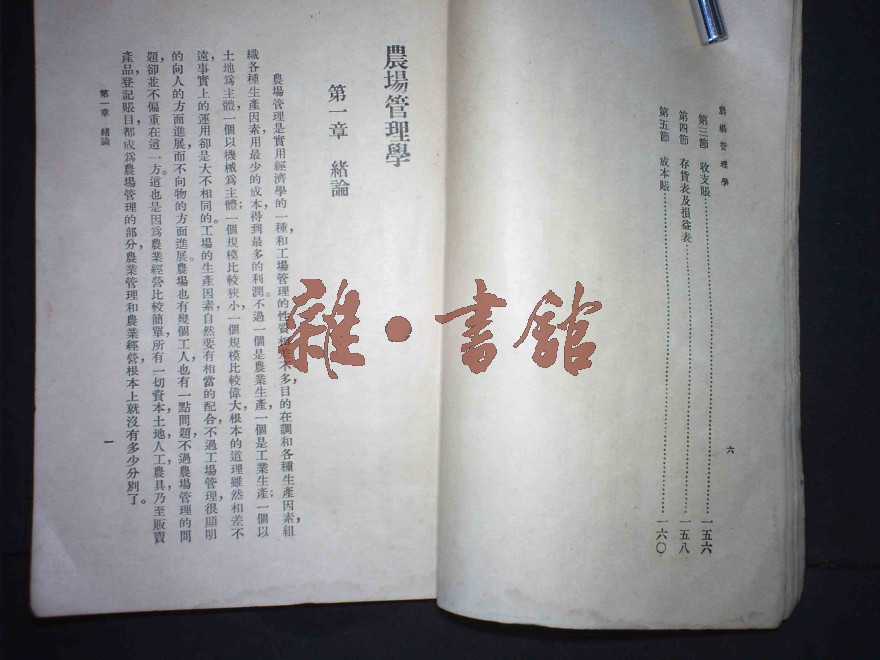 農場管理學
第三節 收支賬……一五六
第四節 存貨表及損益表……一五八
第五節 成本賬……一六〇
六
農場管理學
第一章 緒論
農場管理是實用經濟學的一種,和工場管理的性質相差不多,目的在調和各種生產因素,組
織各種生產因素,用最少的成本,得到最多的利潤。不過一個是農業生產,一個是工業生產;一個以
土地爲主體,一個以機械爲主體;一個規模比較狹小,一個規模比較偉大,根本的道理雖然相差不
遠,事實上的運用卻是大不相同的。工場的生產因素,自然要有相當的配合,不過工場管理,很顯明
的向人的方面進展,而不向物的方面進展。農場也有幾個工人,也有一點問題,不過農場管理的問
題,卻並不偏重在這一方。這也是因爲農業經營比較簡單,所有一切資本土地人工農具乃至販賣
產品登記賬目,都成爲農場管理的部分,農業管理和農業經營根本上就沒有多少分別了。
第一章 緒論
一
雜·書館